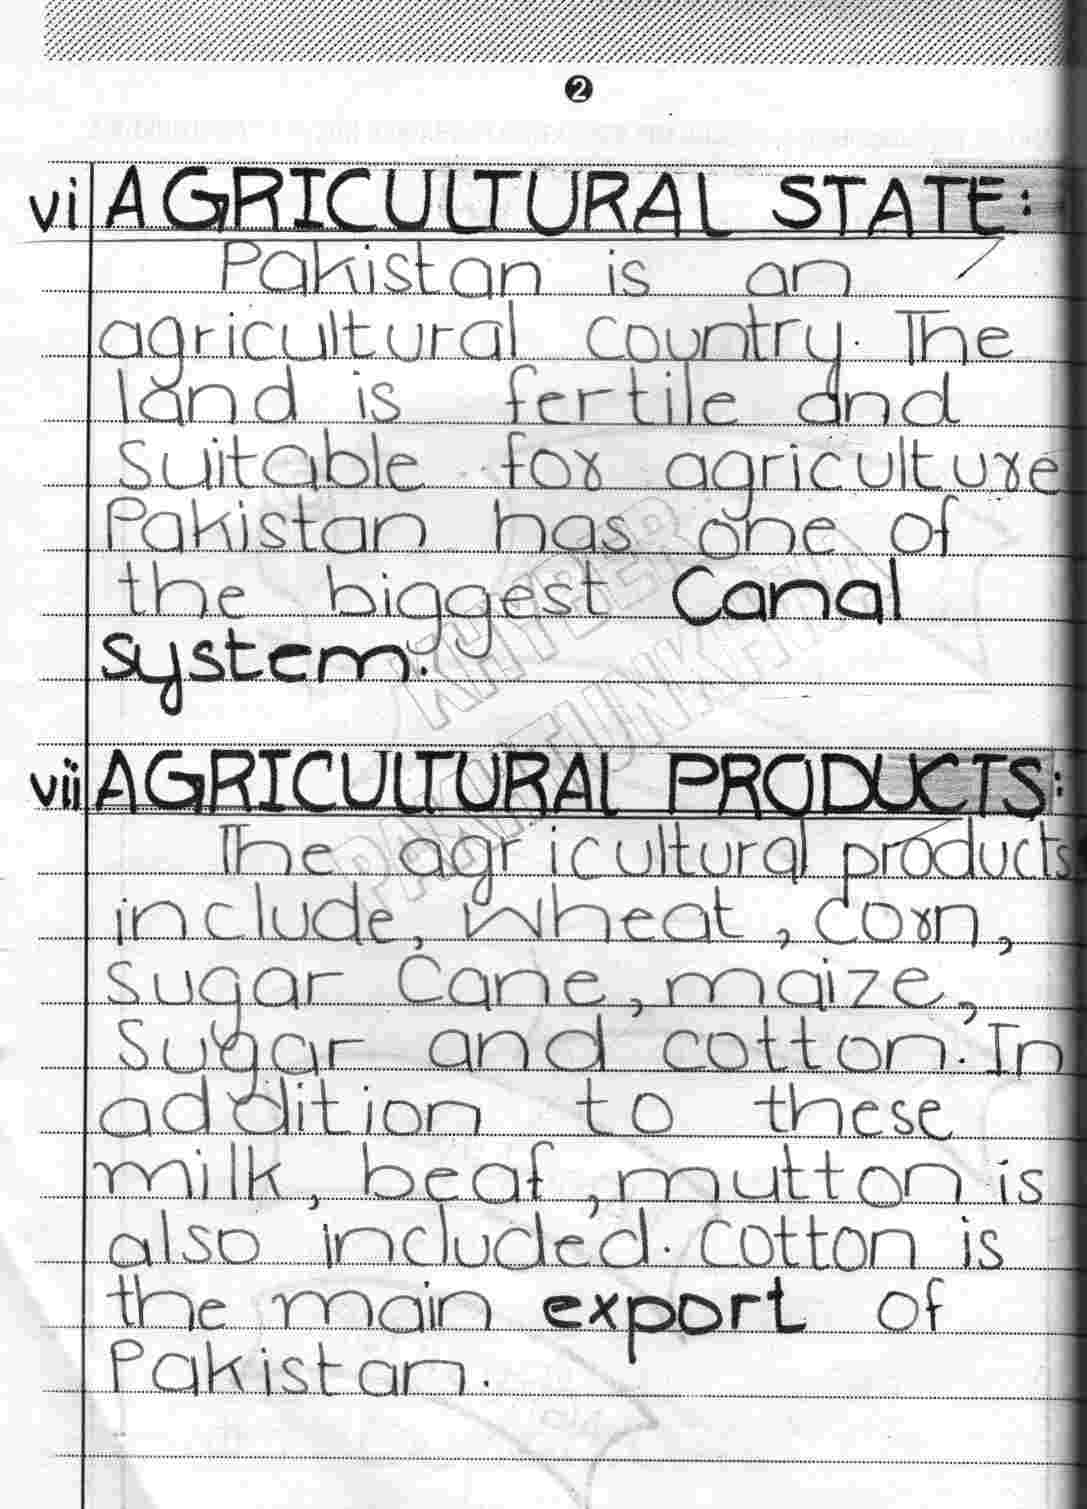 2
vi AGRICULTURAL STATE:
Pakistan is an
agricultural country. The
land is fertile and
suitable for agriculture
Pakistan has one of
the biggest Canal
system.
KHYBER
PAKHTUNKHWA
vii AGRICULTURAL PRODUCTS:
The agricultural products
include, wheat, corn,
sugar cane, maize,
sugar and cotton. In
addition to these
milk, beaf, mutton is
also included. cotton is
the main export of
Pakistan.